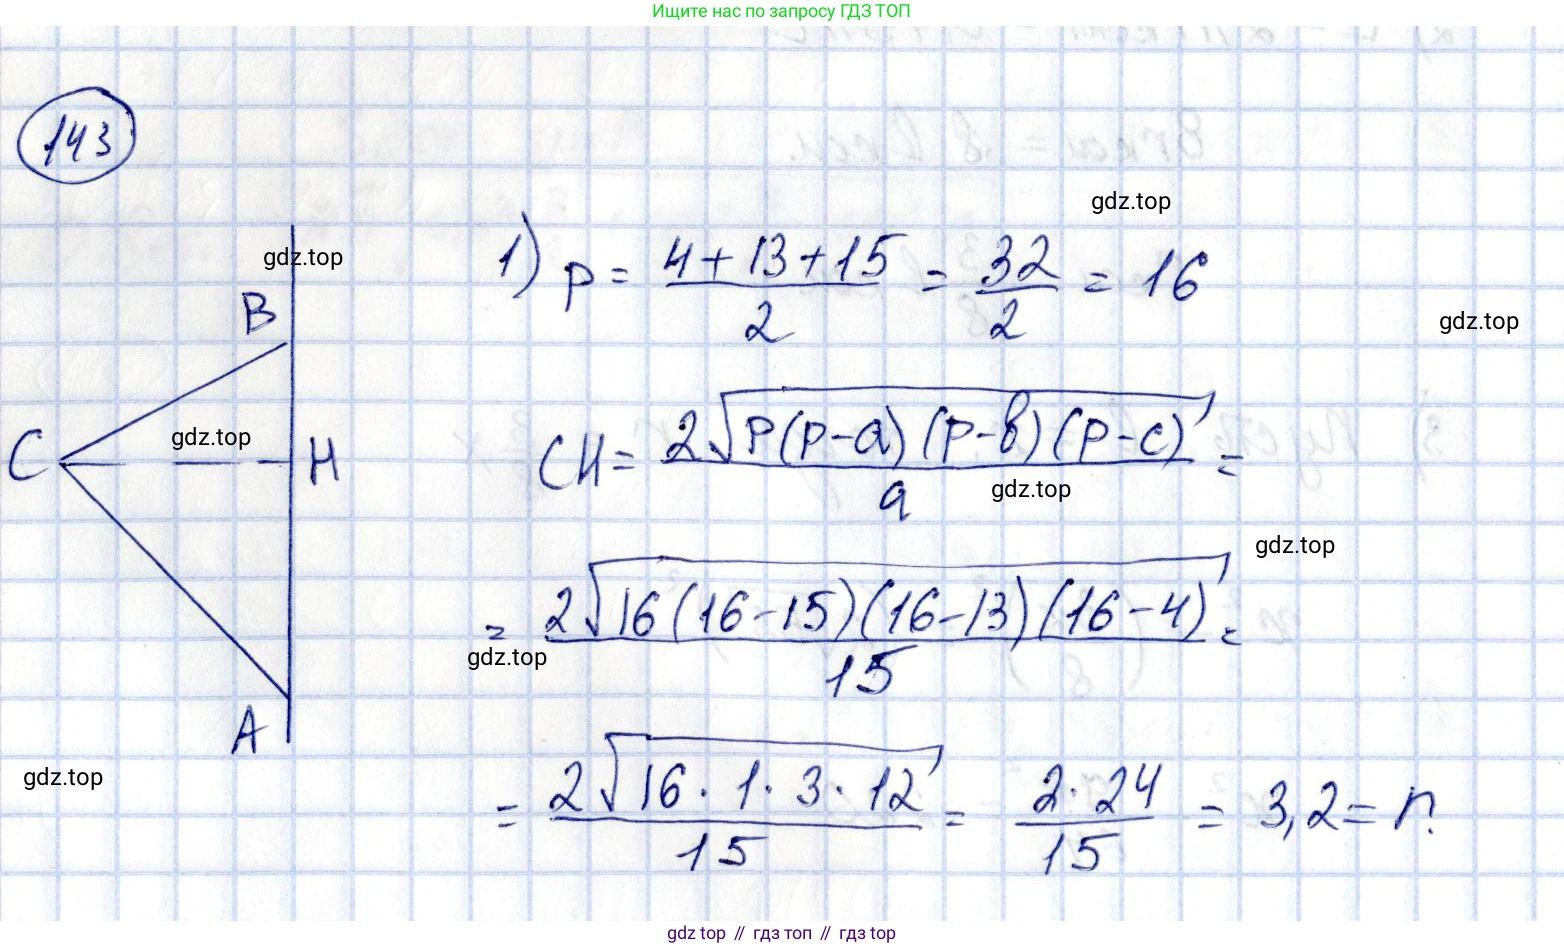 Ищите нас по запросу ГДЗ ТОП
143
gdz.top
gdz.top
B
1) p = (4+13+15)/2 = 32/2 = 16
gdz.top
C
gdz.top
H
CH = 2√(p(p-a)(p-b)(p-c))/a =
gdz.top
gdz.top
= 2√(16(16-15)(16-13)(16-4))/15 =
gdz.top
A
gdz.top
= 2√(16·1·3·12)/15 = 2·24/15 = 3,2 = r.
gdz top // гдз топ // гдз top